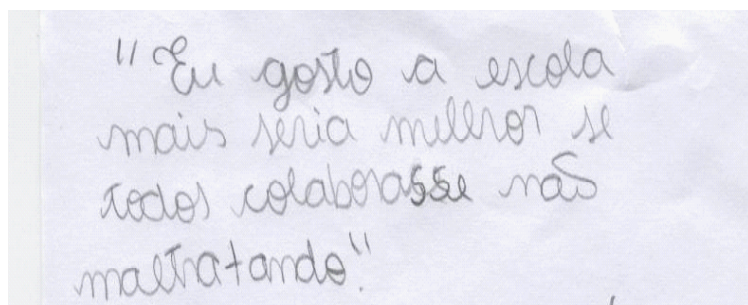 "Eu gosto a escola
mais seria melhor se
todos colaborasse não
maltratando."